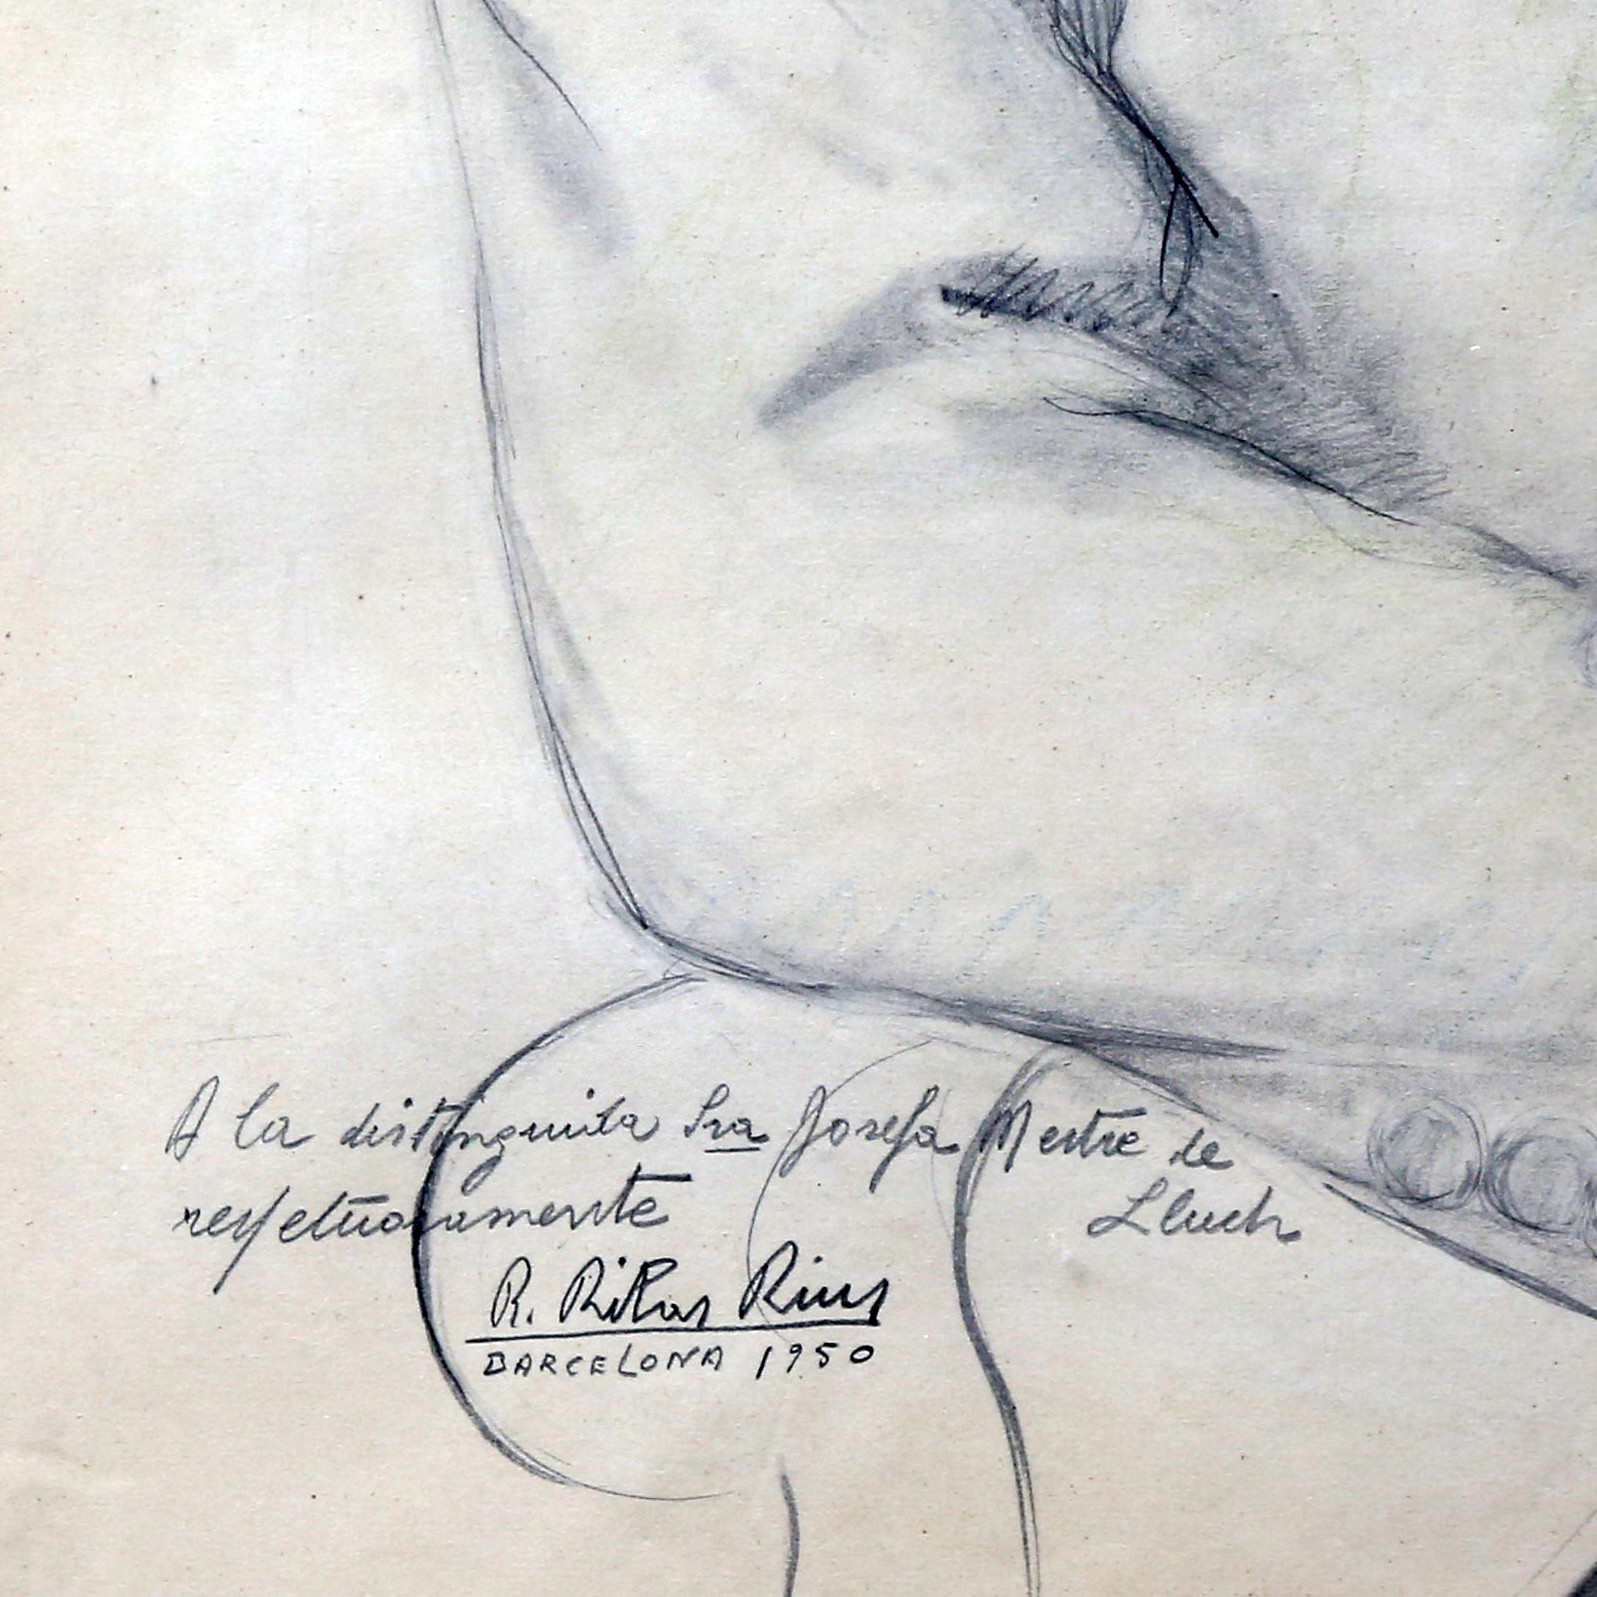 A la distinguida Sra Josefa Mestre de
Lluch
respetuosamente
R. Ribas Rius
BARCELONA 1950